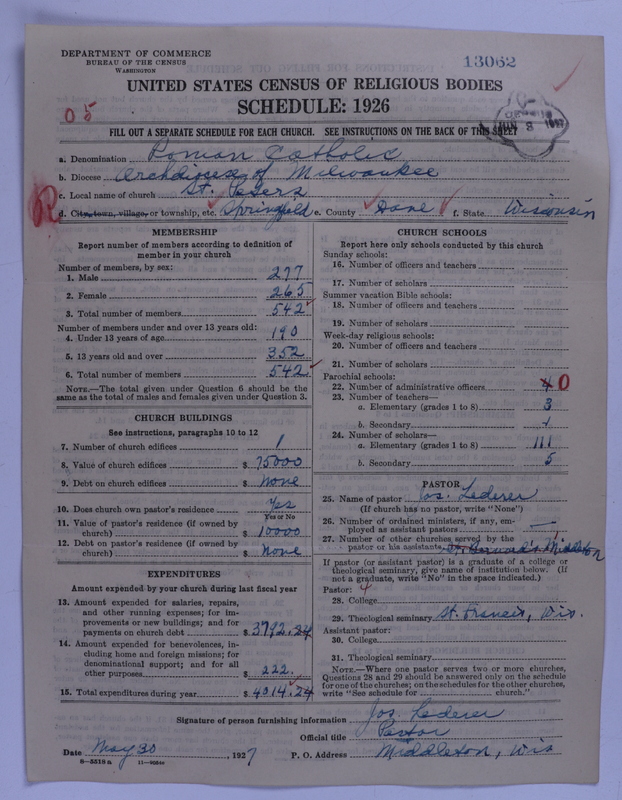 DEPARTMENT OF COMMERCE
BUREAU OF THE CENSUS
WASHINGTON
13062
UNITED STATES CENSUS OF RELIGIOUS BODIES
SCHEDULE: 1926
05
FILL OUT A SEPARATE SCHEDULE FOR EACH CHURCH. SEE INSTRUCTIONS ON THE BACK OF THIS SHEET
a. Denomination Roman Catholic
b. Diocese Archdiocese of Milwaukee
c. Local name of church St. Peters
R
d. City, town, village, or township, etc. Springfield e. County Dane f. State Wisconsin
MEMBERSHIP
Report number of members according to definition of
member in your church
Number of members, by sex:
1. Male 277
2. Female 265
3. Total number of members 542
Number of members under and over 13 years old:
4. Under 13 years of age 190
5. 13 years old and over 352
6. Total number of members 542
NOTE.—The total given under Question 6 should be
same as the total of males and females given under Question 3.
CHURCH BUILDINGS
See instructions, paragraphs 10 to 12
7. Number of church edifices 1
8. Value of church edifices $ 75000
9. Debt on church edifices $ None
10. Does church own pastor's residence? Yes
Yes or No
11. Value of pastor's residence (if owned by
church) $ 10000
12. Debt on pastor's residence (if owned by
church) $ None
EXPENDITURES
Amount expended by your church during last fiscal year
13. Amount expended for salaries, repairs,
and other running expenses; for im-
provements or new buildings; and for
payments on church debt $ 3792.24
14. Amount expended for benevolences, in-
cluding home and foreign missions; for
denominational support; and for all
other purposes $ 222.
15. Total expenditures during year $ 4014.24
CHURCH SCHOOLS
Report here only schools conducted by this church
Sunday schools:
16. Number of officers and teachers
17. Number of scholars
Summer vacation Bible schools:
18. Number of officers and teachers
19. Number of scholars
Week-day religious schools:
20. Number of officers and teachers
21. Number of scholars
Parochial schools:
22. Number of administrative officers 0
23. Number of teachers—
a. Elementary (grades 1 to 8) 3
b. Secondary 1
24. Number of scholars—
a. Elementary (grades 1 to 8) 111
b. Secondary 5
PASTOR
25. Name of pastor Jos. Lederer
(If church has no pastor, write "None")
26. Number of ordained ministers, if any, em-
ployed as assistant pastors —
27. Number of other churches served by the
pastor or his assistants St. Bernard's, Middleton
If pastor (or assistant pastor) is a graduate of a college or
theological seminary, give name of institution below. (If
not a graduate, write "No" in the space indicated.)
Pastor:
28. College
29. Theological seminary St. Francis, Wis.
Assistant pastor:
30. College
31. Theological seminary
NOTE.—Where one pastor serves two or more churches,
Questions 28 and 29 should be answered only on the schedule
for one of the churches; on the schedules for the other churches,
write "See schedule for church."
Signature of person furnishing information Jos. Lederer
Official title Pastor
Date May 30, 1927 P. O. Address Middleton, Wis
8—5518a 11—9084a